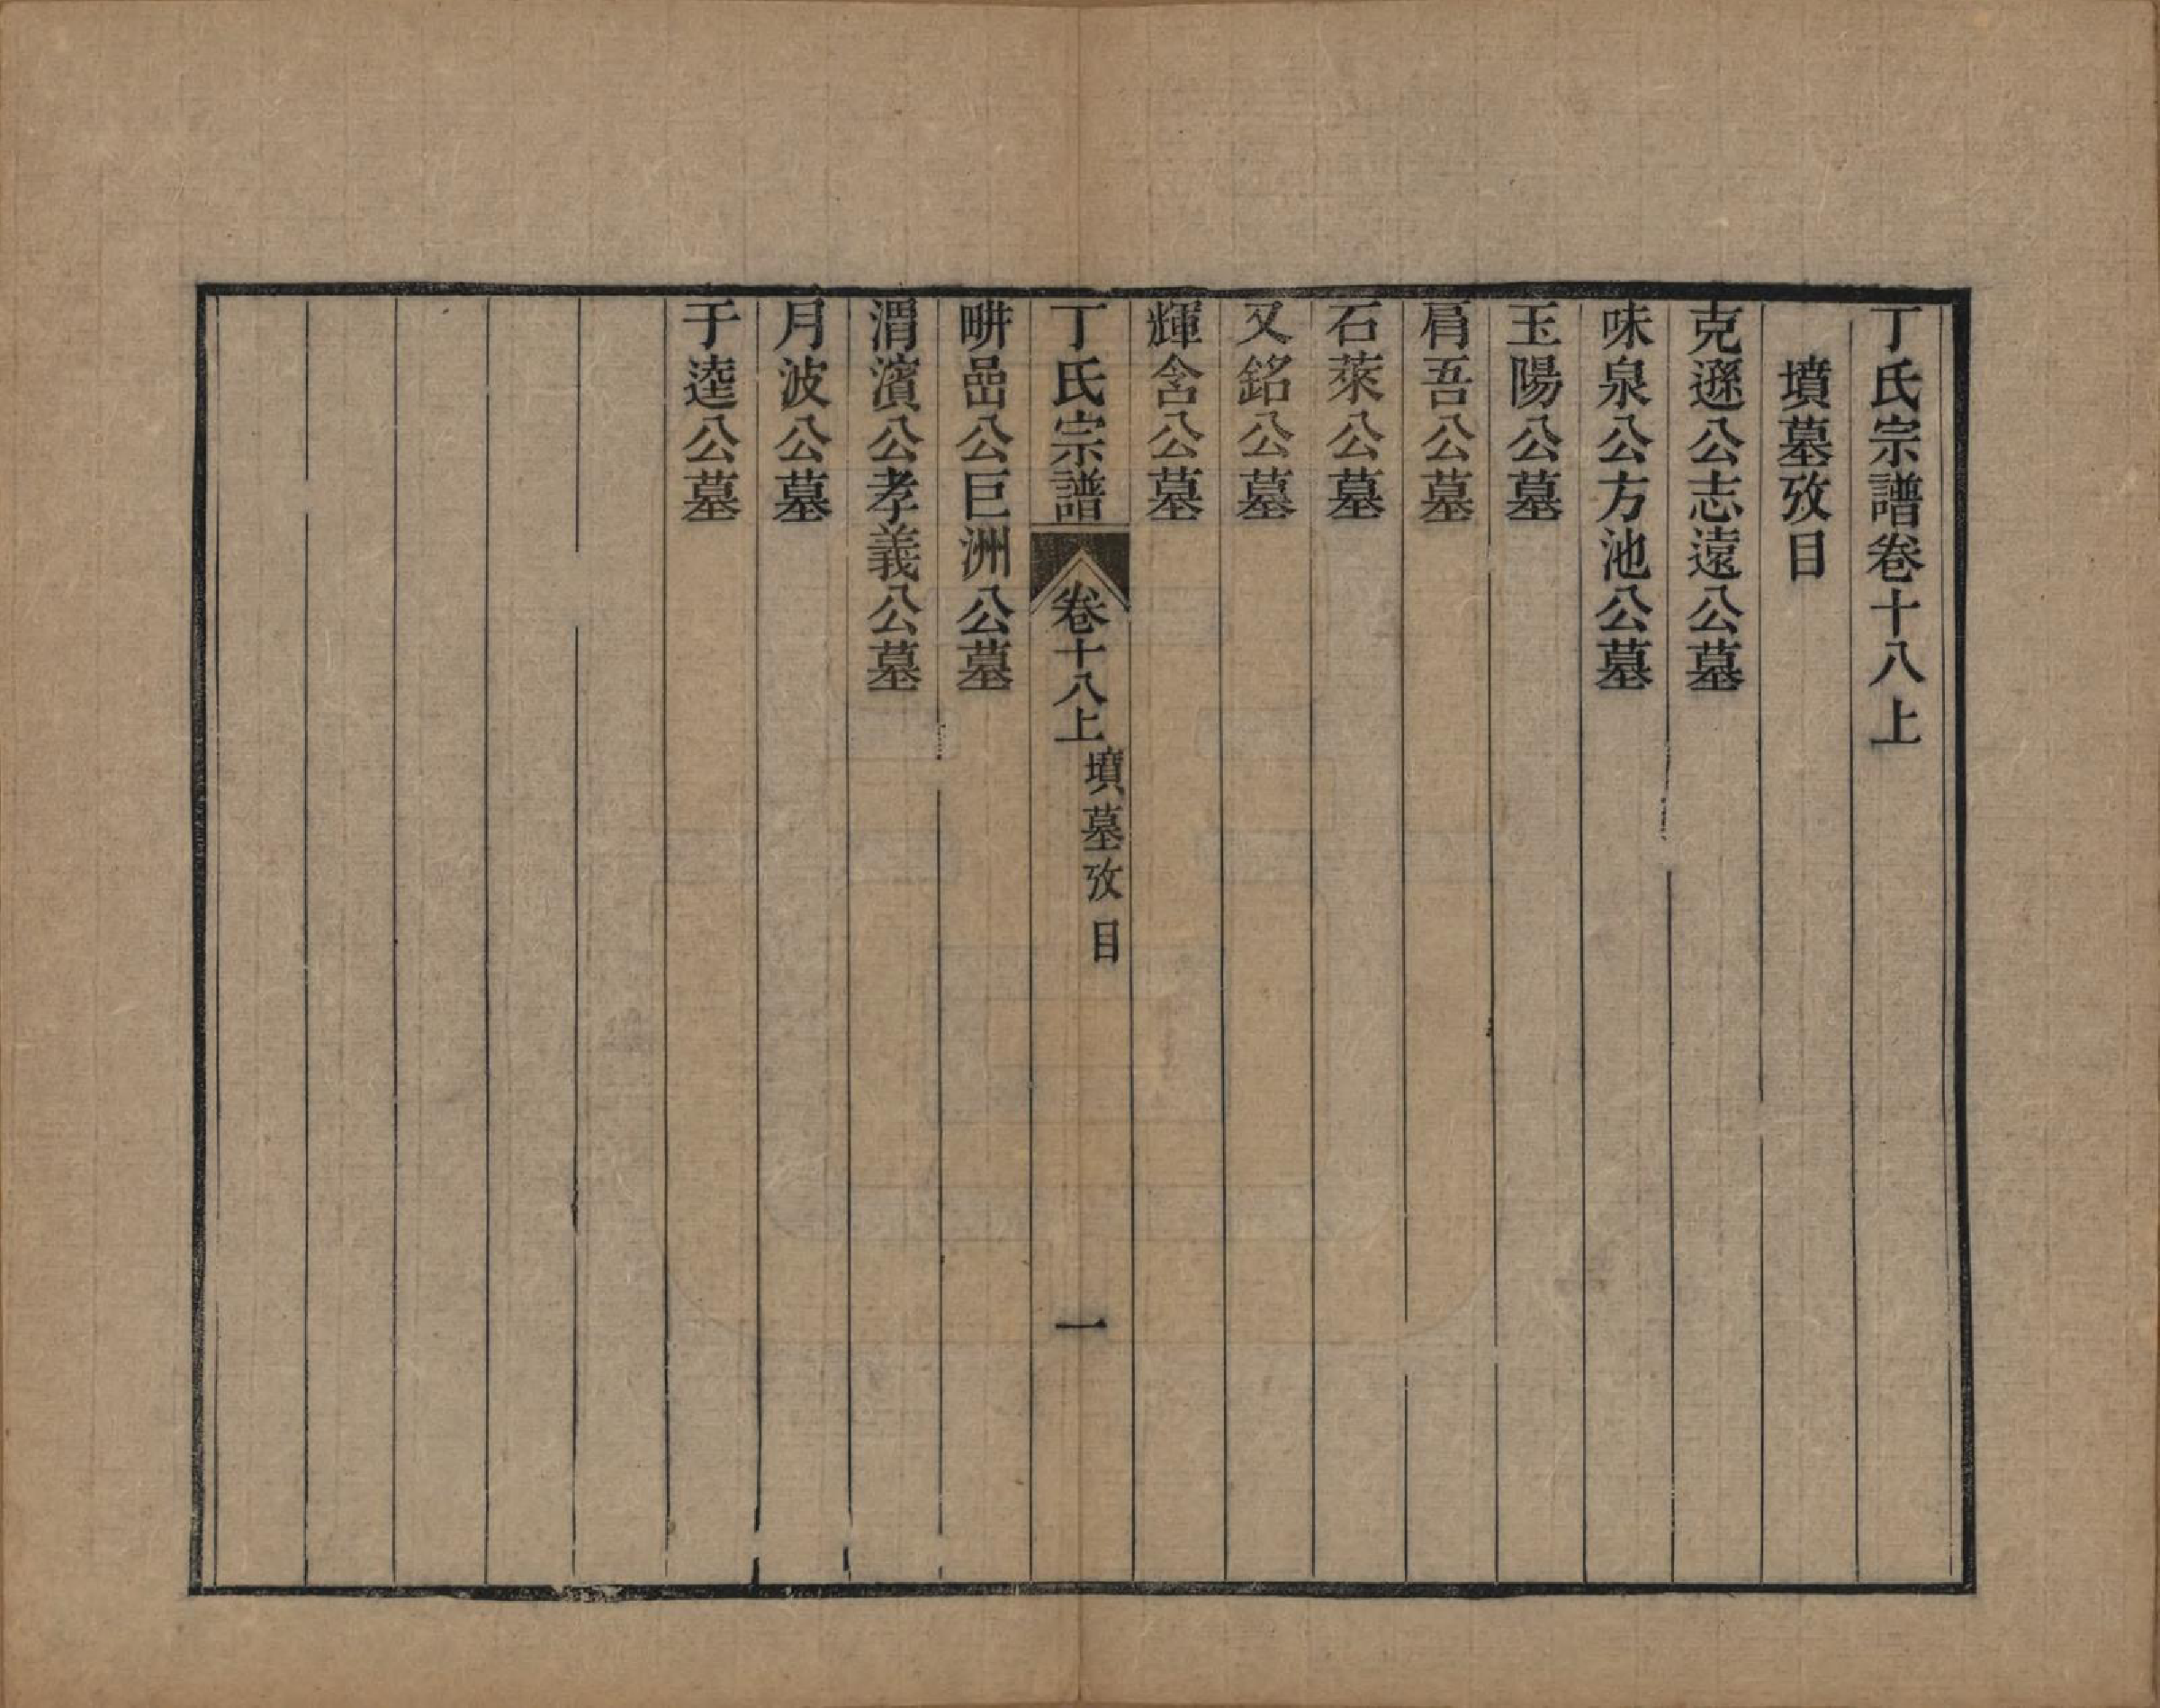 丁氏宗譜卷十八上
墳墓攷目
克遜公志遠公墓
味泉公方池公墓
玉陽公墓
肩吾公墓
石萊公墓
又銘公墓
輝含公墓
丁氏宗譜
卷十八上
墳墓攷目
一
畊嵒公巨洲公墓
渭濱公孝義公墓
月波公墓
于逵公墓